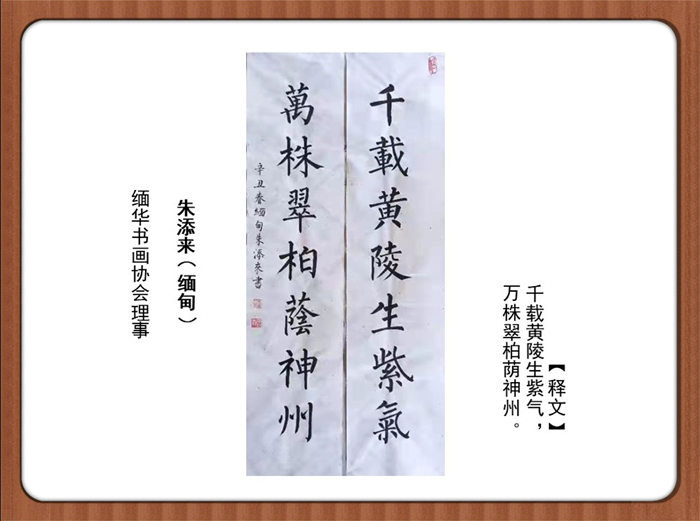 千載黄陵生紫氣
萬株翠柏蔭神州
辛丑春緬甸朱添來書
朱添来（缅甸）
缅华书画协会理事
【释文】
千载黄陵生紫气，
万株翠柏荫神州。